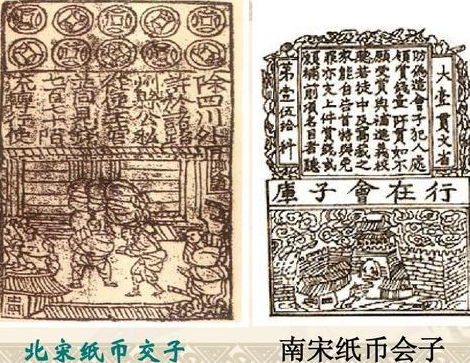 除四川外
許於諸路
州縣公私
從便主管
並同見錢
七百七十陌
流轉行使
大壹貫文省
偽造會子犯人處
賞錢壹阡貫如不
願受賞與補進義校
若徒中及窩藏之
家能自告首特與免
罪亦支上件賞錢或
願補前項名目者聽
第壹伍拾料
行在會子庫
北宋纸币交子
南宋纸币会子